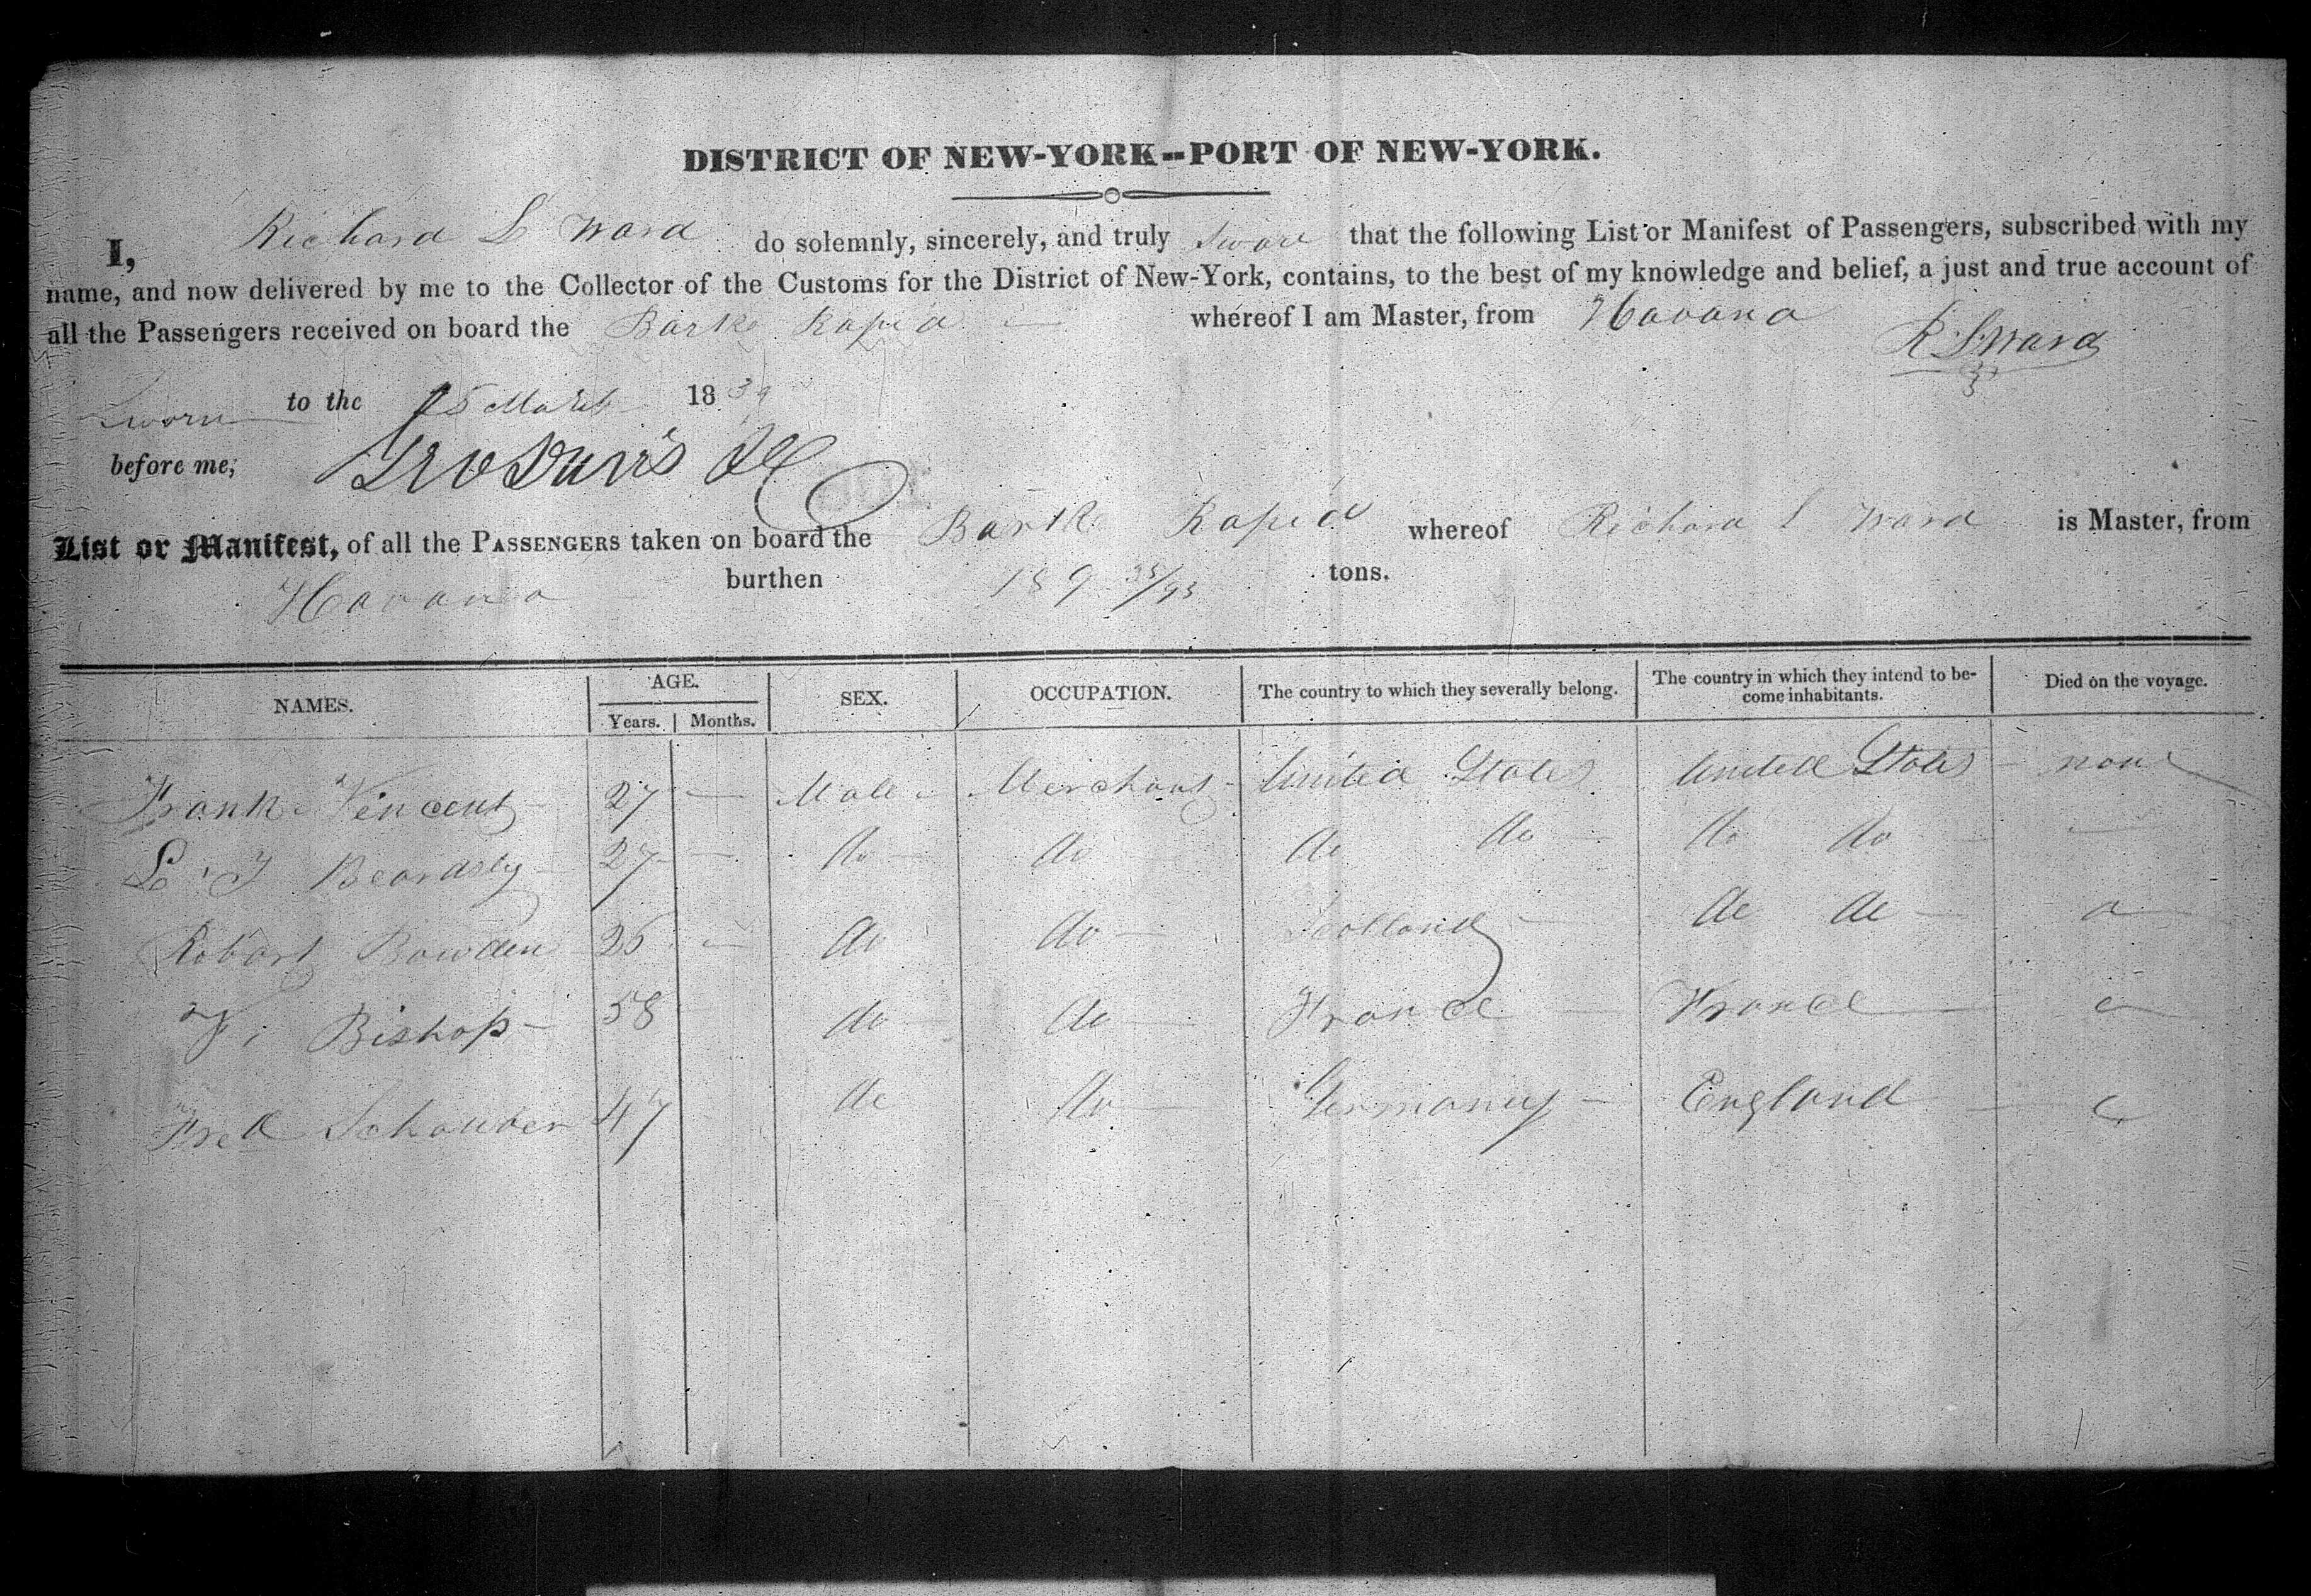 DISTRICT OF NEW-YORK--PORT OF NEW-YORK.
I, Richard L Ward do solemnly, sincerely, and truly Sware that the following List or Manifest of Passengers, subscribed with my
name, and now delivered by me to the Collector of the Customs for the District of New-York, contains, to the best of my knowledge and belief, a just and true account of
all the Passengers received on board the Barke Rapid whereof I am Master, from Havana
R L Ward
Sworn to the 15 March 1839
before me,
List or Manifest, of all the PASSENGERS taken on board the Bark Rapid whereof Richard L Ward is Master, from
Havana burthen 189 35/95 tons.
NAMES. AGE. SEX. OCCUPATION. The country to which they severally belong. The country in which they intend to become inhabitants. Died on the voyage.
Years. Months.
Frank Vincent 27 — Male Merchant United States United States none
L. J Beardsly 27 — do do do do do do —
Robart Bowden 26 — do do Scotland do do
F. Bishop 58 do do France France
Fred Schauber 47 do do Germany England